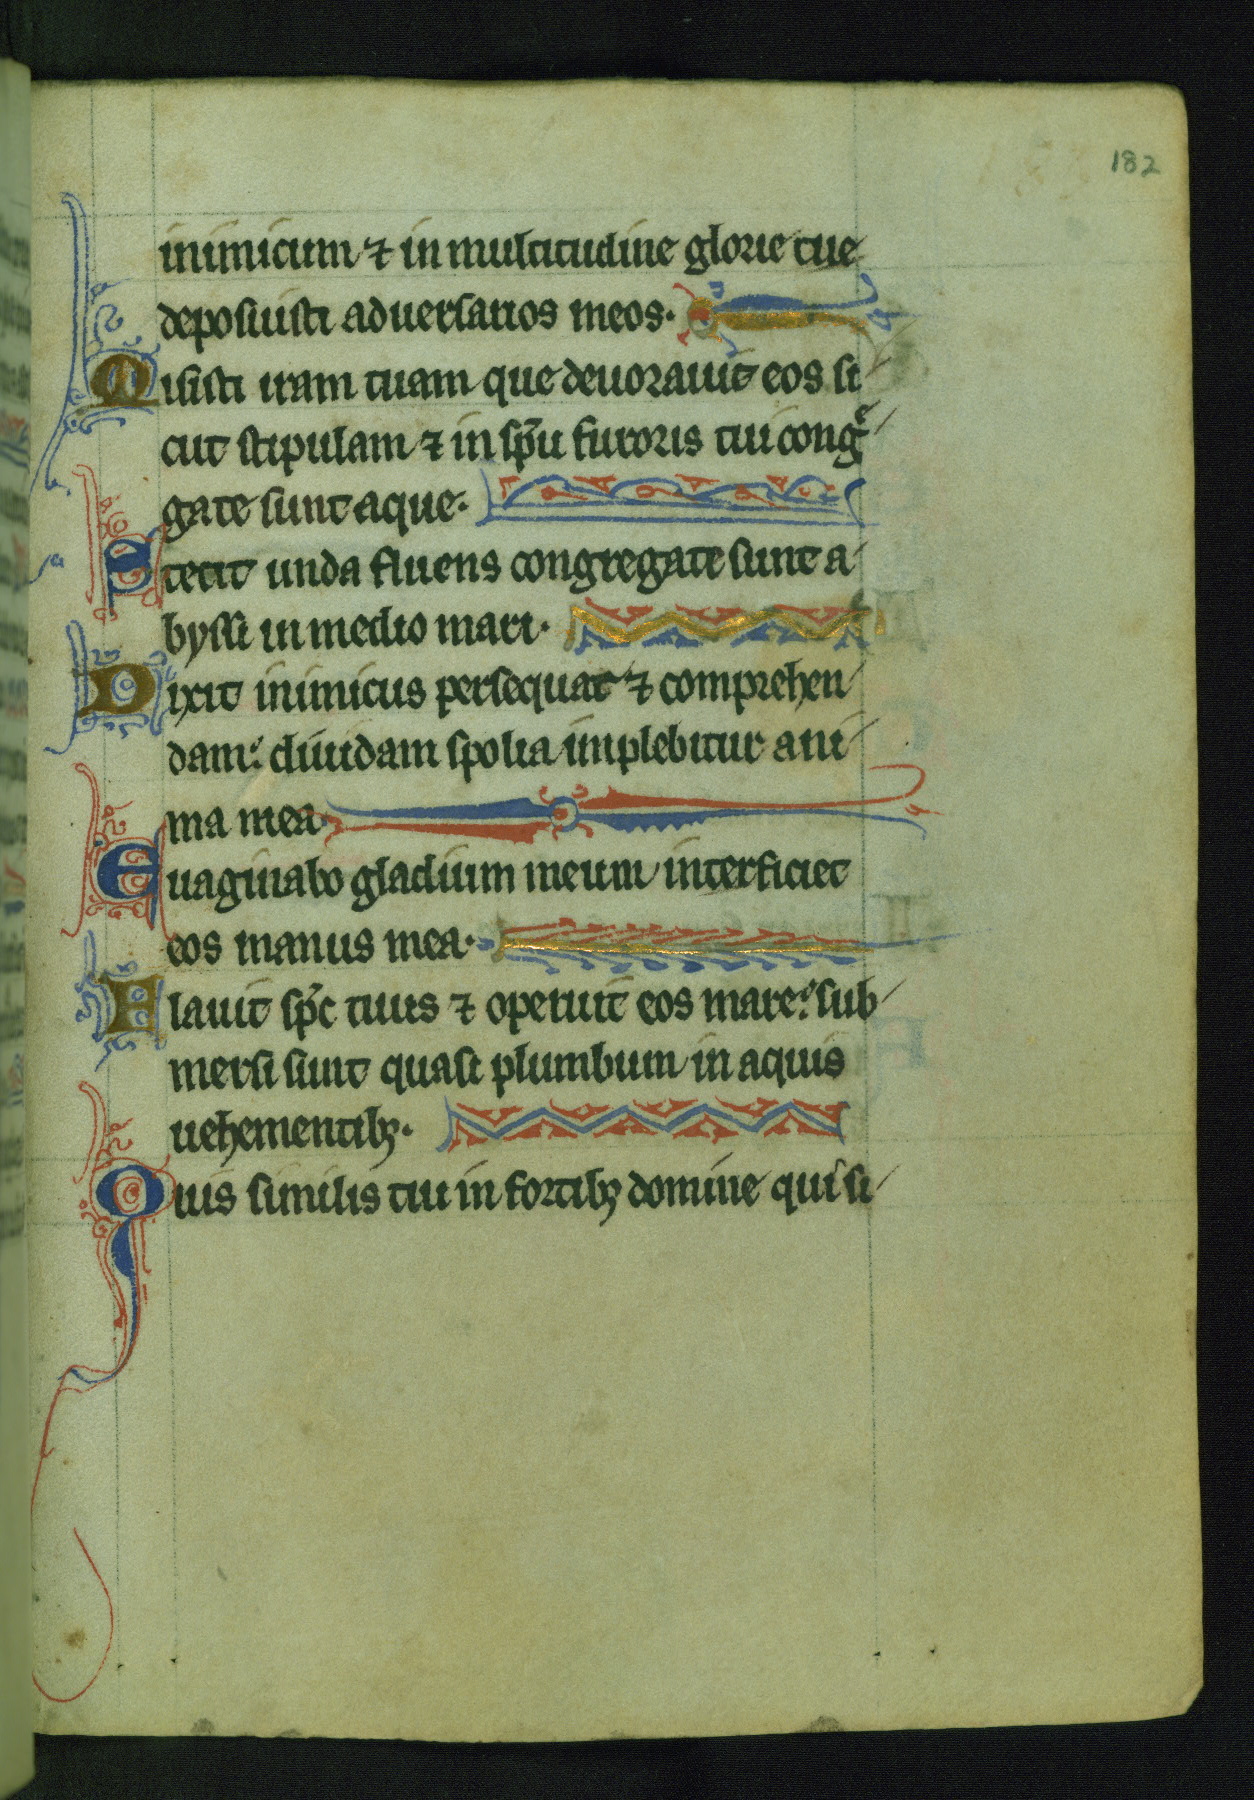 182
inimicum ⁊ in multitudine glorie tue
deposuisti aduersarios meos.
Misisti iram tuam que deuorauit eos si
cut stipulam ⁊ in sp̄u furoris tui congͤ
gate sunt aque.
Stetit unda fluens congregate sunt a
byssi in medio mari.
Dixit inimicus persequar ⁊ comprehen
dam: diuidam spolia implebitur ani
ma mea.
Euaginabo gladium meum interficiet
eos manus mea.
Flauit sp̄c tuus ⁊ operuit eos mare: sub
mersi sunt quasi plumbum in aquis
uehementibꝫ.
Quis similis tui in fortibꝫ domine quis si